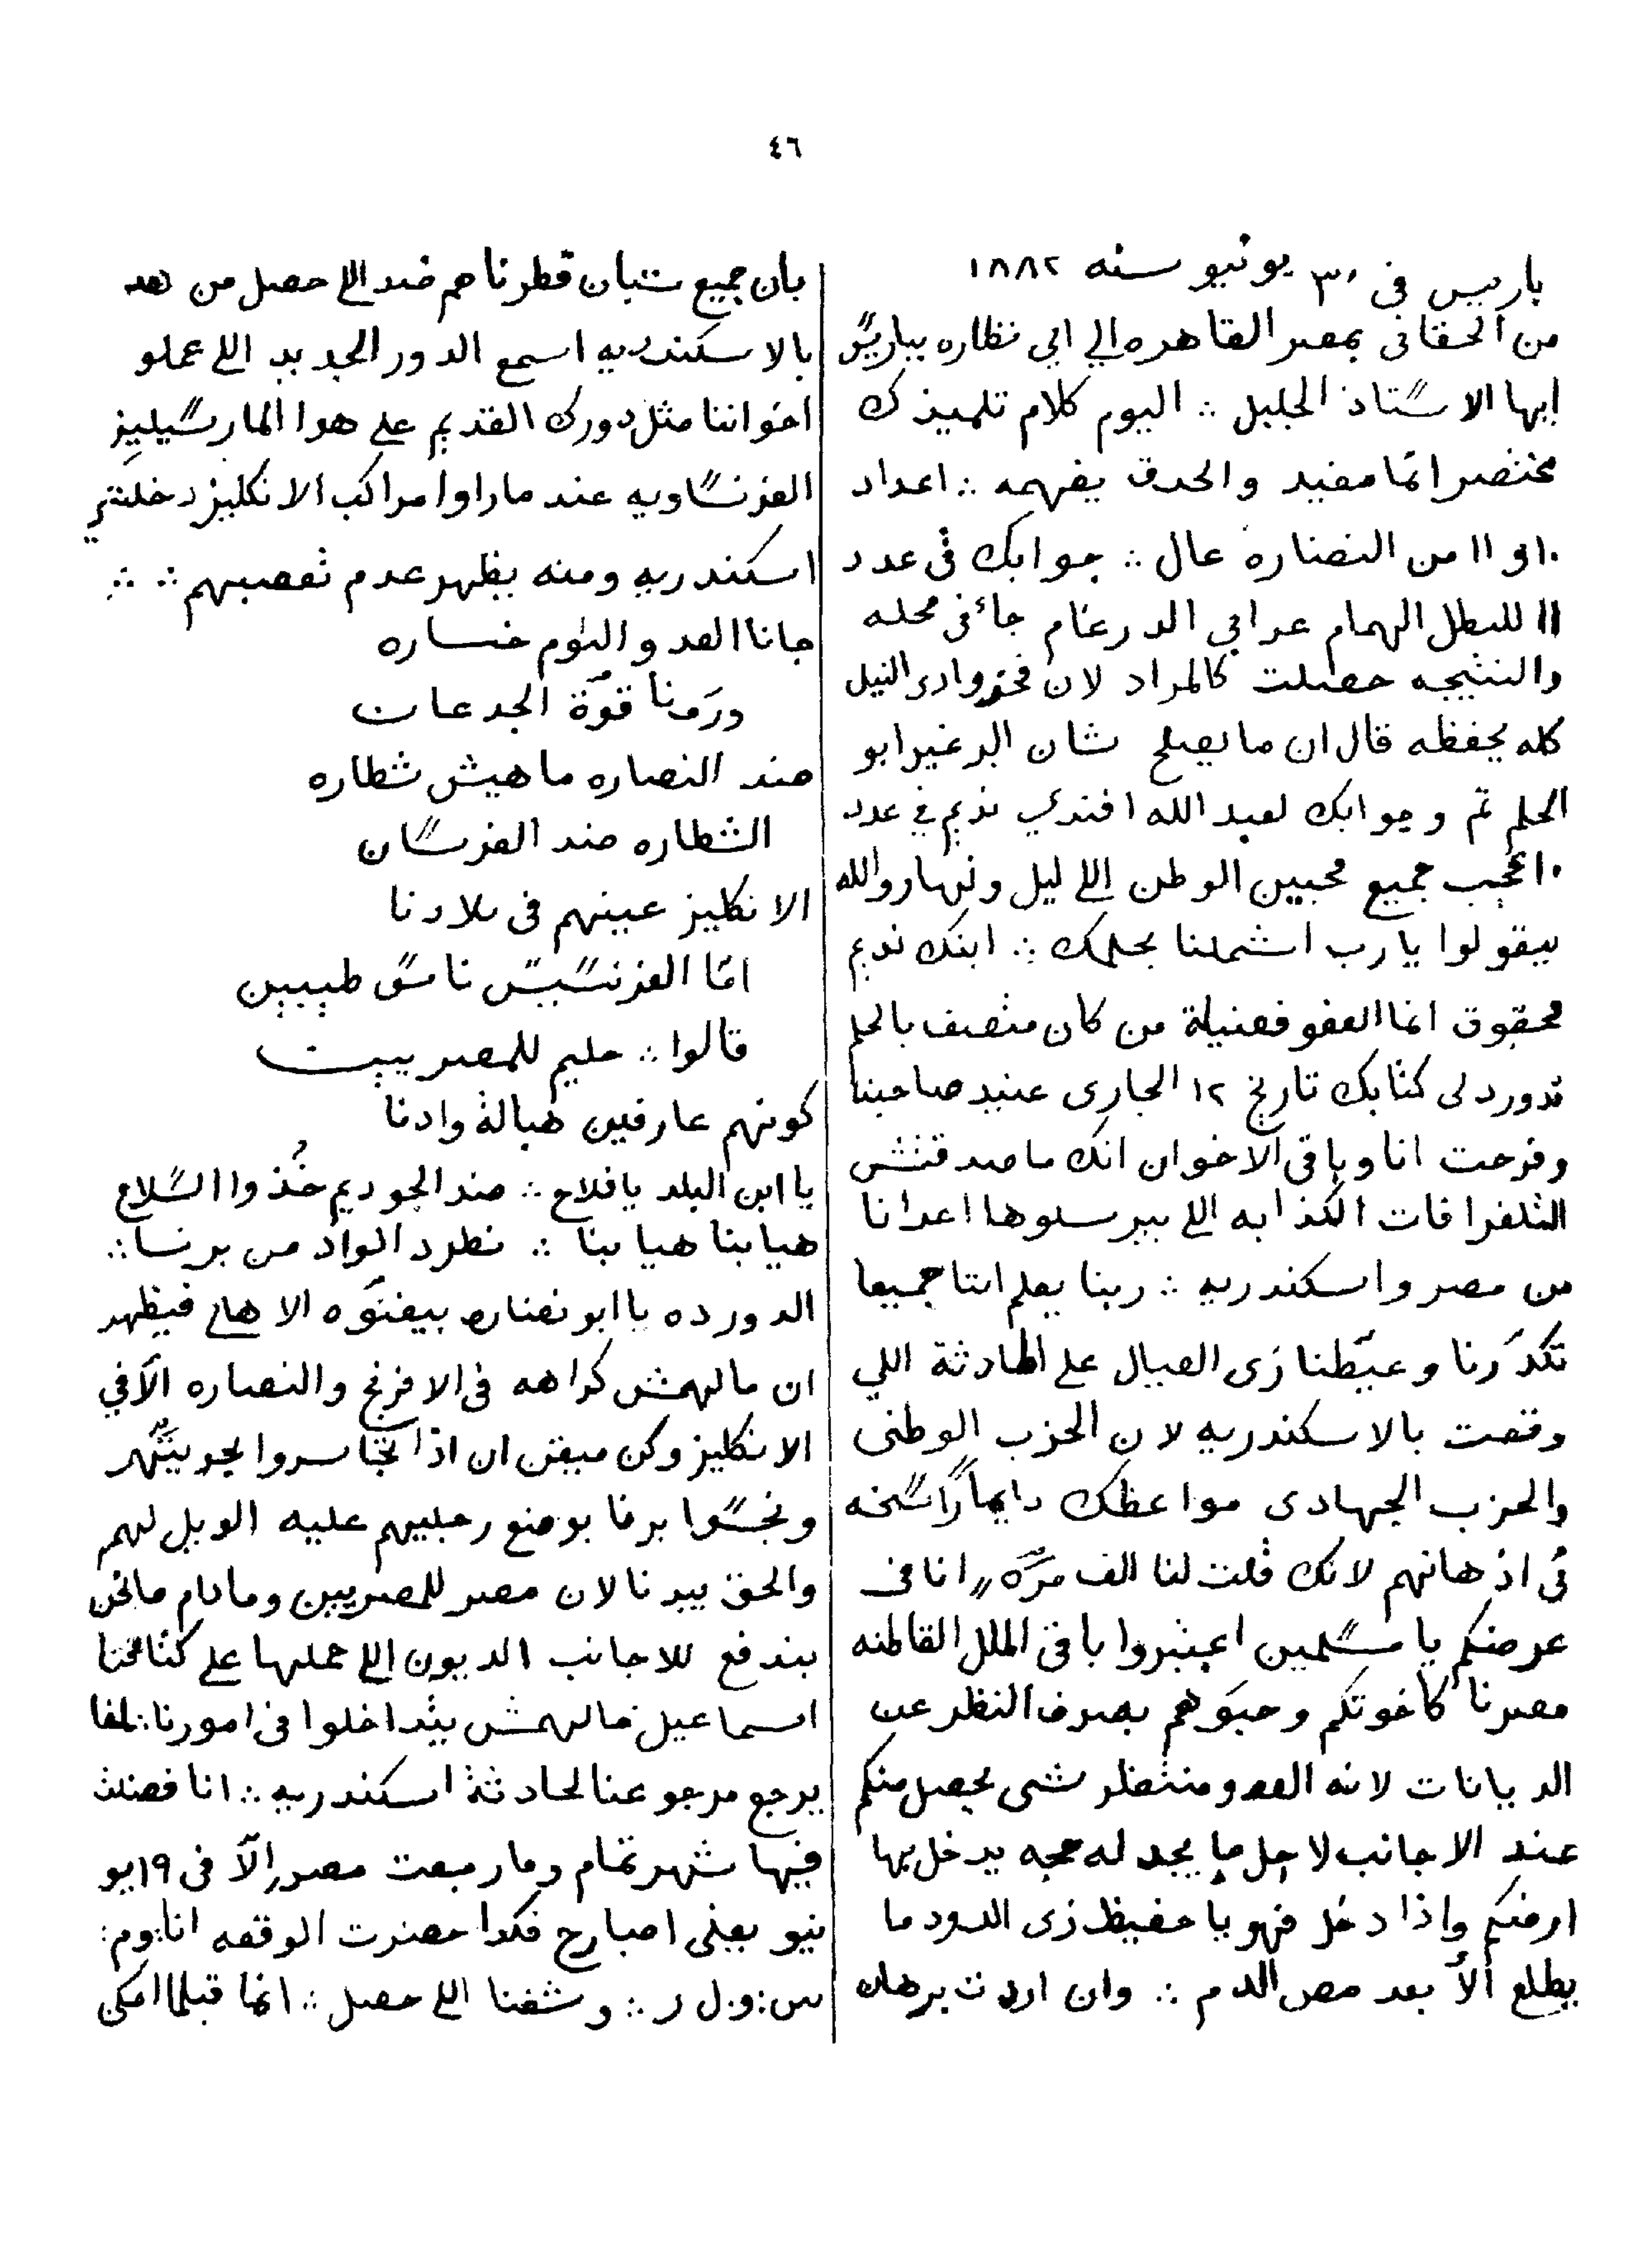 ٤٦
باريس فى ٣٠ يونيو سنه ١٨٨٢
من الحقانى بمصر القاهره الي ابي نظاره بباريس
ايها الاستاذ الجليل ∴ اليوم كلام تلميذك
مختصر انما مفيد والحدق يفهمه ∴ اعداد
١٠ و ١١ من النضاره عال ∴ جوابك فى عدد
١١ للبطل الهمام عرابي الدرغام جاء فى محله
والنتيجه حصلت كالمراد لان فخر وادى النيل
كله يحفظه قال ان ما يصلح شان البرغير ابو
الحلم تم وجوابك لعبد الله افندي نديم في عدد
١٠ اعجب جميع محبين الوطن اللي ليل ونهار والله
بيقولوا يا رب اشملنا بحلمك ∴ ابنك نديم
محقوق انما العفو فضيلة من كان متصف بالحلم
قد ورد لى كتابك تاريخ ١٢ الجارى عنيد صاحبنا
وفرحت انا وباقى الاخوان انك ما صدقتش
التلغرافات الكذابه اللي بيرسلوها اعدانا
من مصر واسكندريه ∴ ربنا يعلم اننا جميعا
تكدّرنا وعيّطنا زى العيال على الحادثة اللي
وقعت بالاسكندريه لان الحزب الوطنى
والحزب الجهادى مواعظك دايماً راسخه
فى اذهانهم لانك قلت لنا الف مرّه „ انا فى
عرضكم يا مسلمين اعتبروا باقى الملل القاطنه
مصرنا كاخوتكم وحبّوهم بصرف النظر عن
الديانات لانه العدو منتظر شى يحصل منكم
عند الاجانب لاجل ما يجد له حجه يدخل بها
ارضكم واذا دخل فهو يا حفيظ زى الدود ما
يطلع الّا بعد مص الدم ∴ وان اردت برهان
بان جميع شبان قطرنا هم ضد اللي حصل من هده
بالاسكندريه اسمع الدور الجديد اللي عملو
اخواننا مثل دورك القديم على هوا المارسيليز
الفرنساويه عند ما راوا مراكب الانكليز دخلت
اسكندريه ومنه يظهر عدم تعصبهم ∴ ∴
جانا العدو واليوم خساره
ورمنا قوّة الجدعان
ضد النصاره ماهيش شطاره
الشطاره ضد الفرسان
الانكليز عينهم فى بلادنا
امّا الفرنسيس ناس طيبين
قالوا ∴ حليم للمصريين
كونهم عارفين هبالة وادنا
يا ابن البلد يا فلاح ∴ ضد الجوديم خُذوا السلاح
هيا بنا هيا بنا ∴ نطرد الواد من برنسا ∴
الدور ده يا ابو نضاره بيغنّوه الاهالي فيظهر
ان مالهمش كراهه فى الافرنج والنصاره الّا في
الانكليز وكن ميقن ان اذا تجاسروا يجو بيتهر
ونجسوا برنا بوضع رجليهم عليه الويل لهم
والحق بيدنا لان مصر للمصريين ومادام ما نحن
بندفع للاجانب الديون اللي حملها على كتافنا
اسماعيل فمالهمش يتداخلوا فى امورنا ∴ بلغا
يرجع مرجوعنا لحادثة اسكندريه ∴ انا فضلت
فيها شهر تمام وما رجعت مصر إلّا فى ١٩ يو
نيو يعنى امبارح فكدا حضرت الوقعه انا وم:
س: و: ل ر ∴ وشفنا اللي حصل ∴ انما قبلما احكى